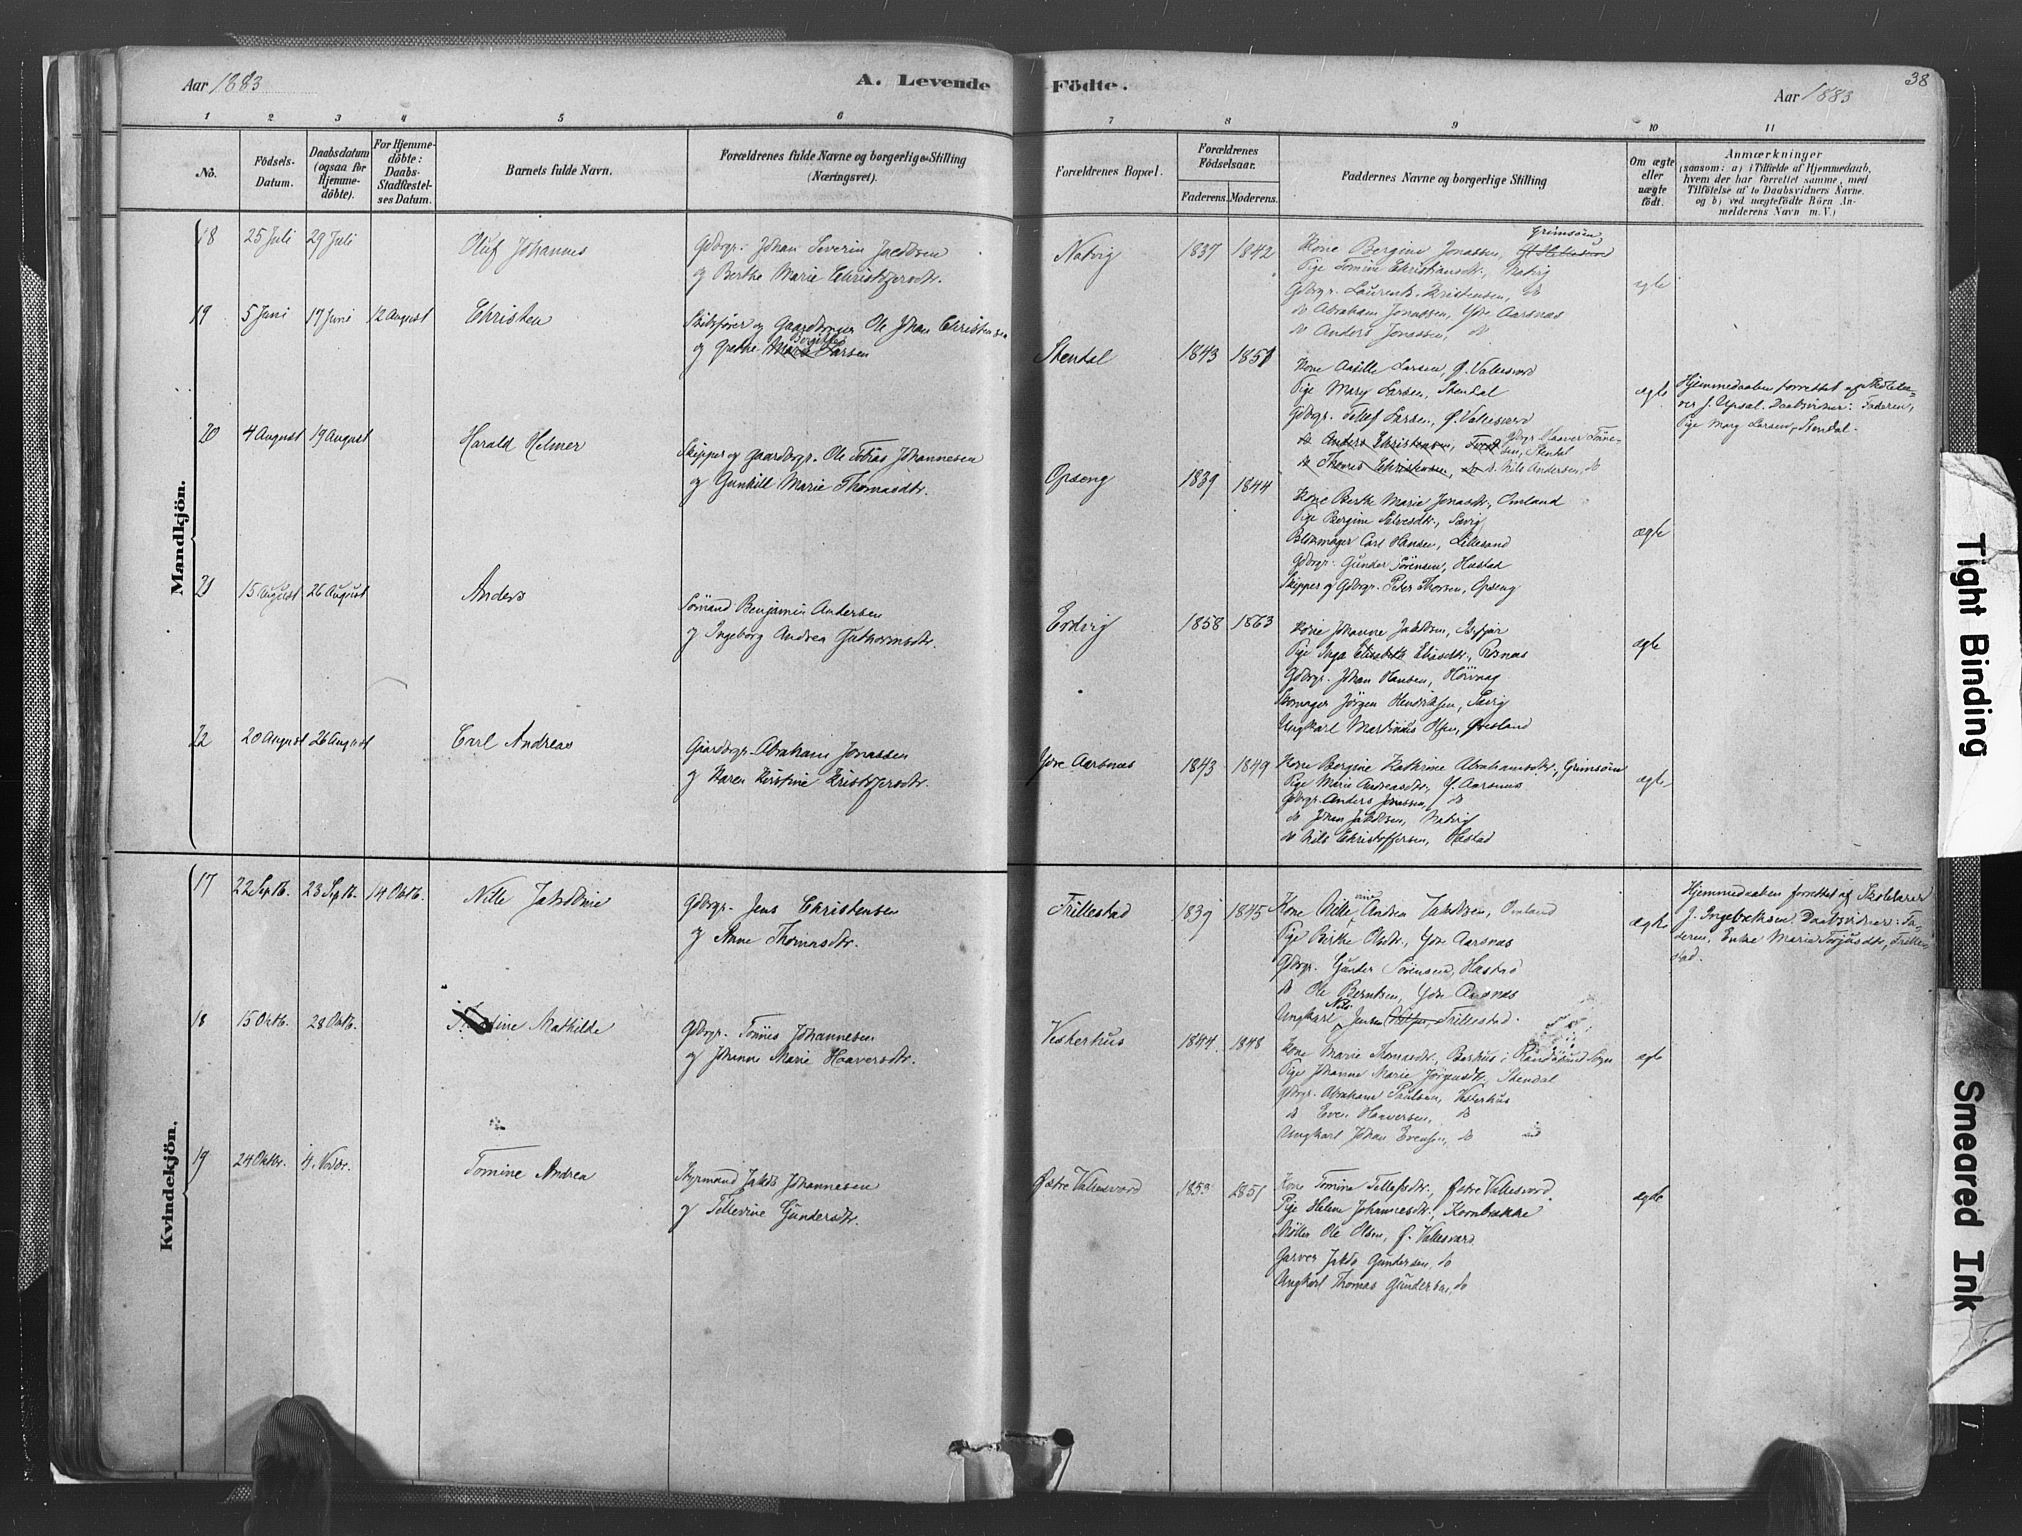 Aar 1883
A. Levende
Födte.
Aar 1883
38
1 2 3 4 5 6 7 8 9 10 11
No.
Födsels-
Datum.
Daabsdatum
(ogsaa for
Hjemme-
döbte).
For Hjemme-
döbte:
Daabs-
Stadfæstel-
ses Datum.
Barnets fulde Navn.
Forældrenes fulde Navne og borgerlige Stilling
(Næringsvei).
Forældrenes Bopæl.
Forældrenes
Födselsaar.
Faderens. Moderens.
Faddernes Navne og borgerlige Stilling
Om ægte
eller
uægte
födt.
Anmærkninger
(saasom: a) i Tilfælde af Hjemmedaab,
hvem der har forrettet samme, med
Tilföielse af to Daabsvidners Navne,
og b) ved uægtefödte Börn An-
melderens Navn m. V.)
Mandkjön.
18 25 Juli 29 Juli Oluf Johannes
Gdbrgr. Johan Severin Jacobsen
og Berthe Marie Christofersdtr.
Natvig 1837 1842
Grimsøen
Kone Bergine Jonassen,
Pige Tomine Christiansdtr., Natvig
Gdbrgr. Laurents Kristensen, do
do Abraham Jonassen, Ydre Aarsnæs
do Anders Jonassen, do
ægte
19 5 Juni 17 Juni 12 August Christen
Skibsfører og Gaardbruger Ole Johan Christensen
og Grethe Marie Larsen
Stendal 1843 1851
Kone Aasille Larsen, Ø. Vallesværd
Pige Mary Larsen, Stendal
Gdbrgr. Tellef Larsen, Ø. Vallesværd
do Anders Christensen, Gdbrgr. Haaver Tønne-
sen, Stendal
do Thomas Christensen, do do Nils Andersen, do
ægte
Hjemmedaaben forrettet af Skolelæ-
rer J. Upsal. Daabsvidner: Faderen,
Pige Mary Larsen, Stendal.
20 4 August 19 August Harald Helmer
Skipper og Gaardbrgr. Ole Tobias Johannesen
og Gunhill Marie Thomasdtr.
Opseng 1839 1844
Kone Berthe Marie Jonasdtr., Omland
Pige Bergine Salvesdtr., Sævig
Blikmager Carl Hansen, Lillesand
Gdbrgr. Gunder Sörensen, Hæstad
Skipper og Gdbrgr. Peter Thorsen, Opseng
ægte
21 15 August 26 August Anders
Sömand Benjamin Andersen
og Ingeborg Andrea Guthormsdtr.
Eidvig 1858 1863
Kone Johanne Jakobsen,
Pige Inga Elisabeth Eliasdtr.,
Gdbrgr. Johan Hansen,
Skomager Jörgen Hendriksen, Sævig
Ungkarl Martinius Olsen,
ægte
22 20 August 26 August Carl Andreas
Gaardbrgr. Abraham Jonassen
og Karen Kirstine Kristofersdtr.
Ydre Aarsnæs 1843 1849
Kone Bergine Kathrine Abrahamsdtr., Grimsöen
Pige Marie Andreasdtr., Y. Aarsnæs
Gdbrgr. Anders Jonassen, do
do Johan Jakobsen, Natvig
do Nils Christoffersen, Hæstad
ægte
Kvindekjön.
17 22 Septb. 23 Septb. 14 Oktb. Nille Jakobine
Gdbrgr. Jens Christensen
og Anne Thomasdtr.
Trillestad 1839 1845
Kone Nille Andrea Jakobsen, Omland
Pige Berthe Olsdtr., Ydre Aarsnæs
Gdbrgr. Gunder Sörensen, Hæstad
do Ole Berntsen, Ydre Aarsnæs
Nils
Ungkarl Jensen Trillestad.
ægte
Hjemmedaaben forrettet af Skolelærer
J. Ingebrethsen. Daabsvidner: Fa-
deren, Enke Marie Torjusdtr., Trille-
stad.
18 15 Oktb. 28 Oktb. Mathilde
Gdbrgr. Tönnes Johannesen
og Johanne Marie Haaversdtr.
Vesterhus 1844 1848
Kone Marie Thomasdtr., Berhus i Randösund Sogn
Pige Johanne Marie Jörgensdtr., Stendal
Gdbrgr. Abraham Paulsen, Vesterhus
do Even Haaversen, do
Ungkarl Johan Evensen, do
ægte
19 24 Oktbr. 4. Novbr. Tomine Andrea
Styrmand Jakob Johannesen
og Tellevine Gundersdtr.
Östre Vallesværd 1853 1851
Kone Tomine Tellefsdtr., Östre Vallesværd
Pige Helene Johannesdtr., Kornbrække
Möller Ole Olsen, Ö. Vallesværd
Garver Jakob Gundersen, do
Ungkarl Thomas Gundersen, do
ægte
Tight Binding
Smeared Ink